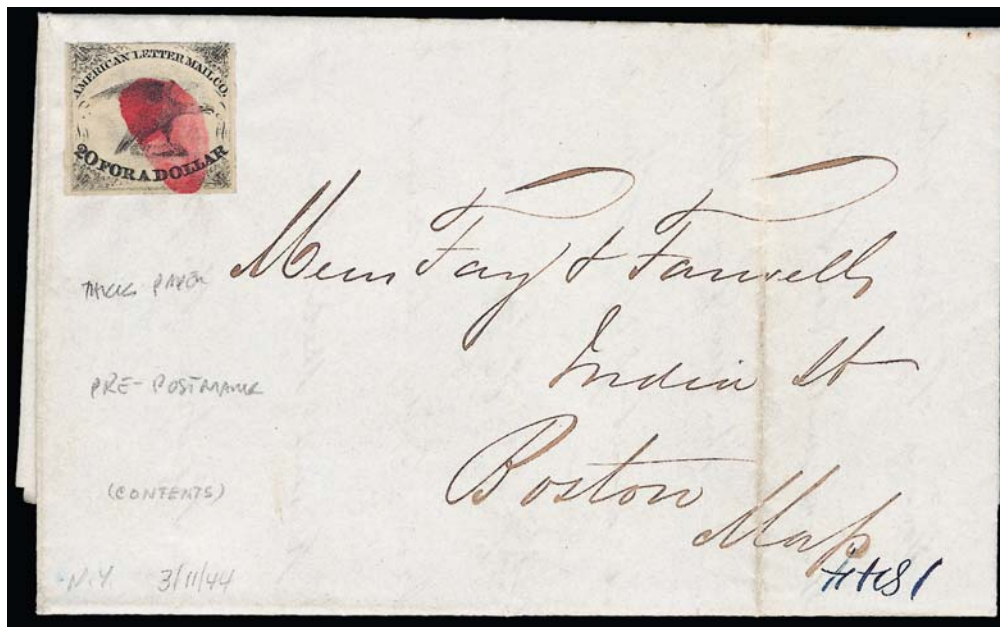 AMERICAN LETTER MAIL CO.
20 FOR A DOLLAR
Messrs Fay & Farwells
India St
Boston
Mass
THICK PAPER
PRE-POSTMARK
(CONTENTS)
N.Y 3/11/44